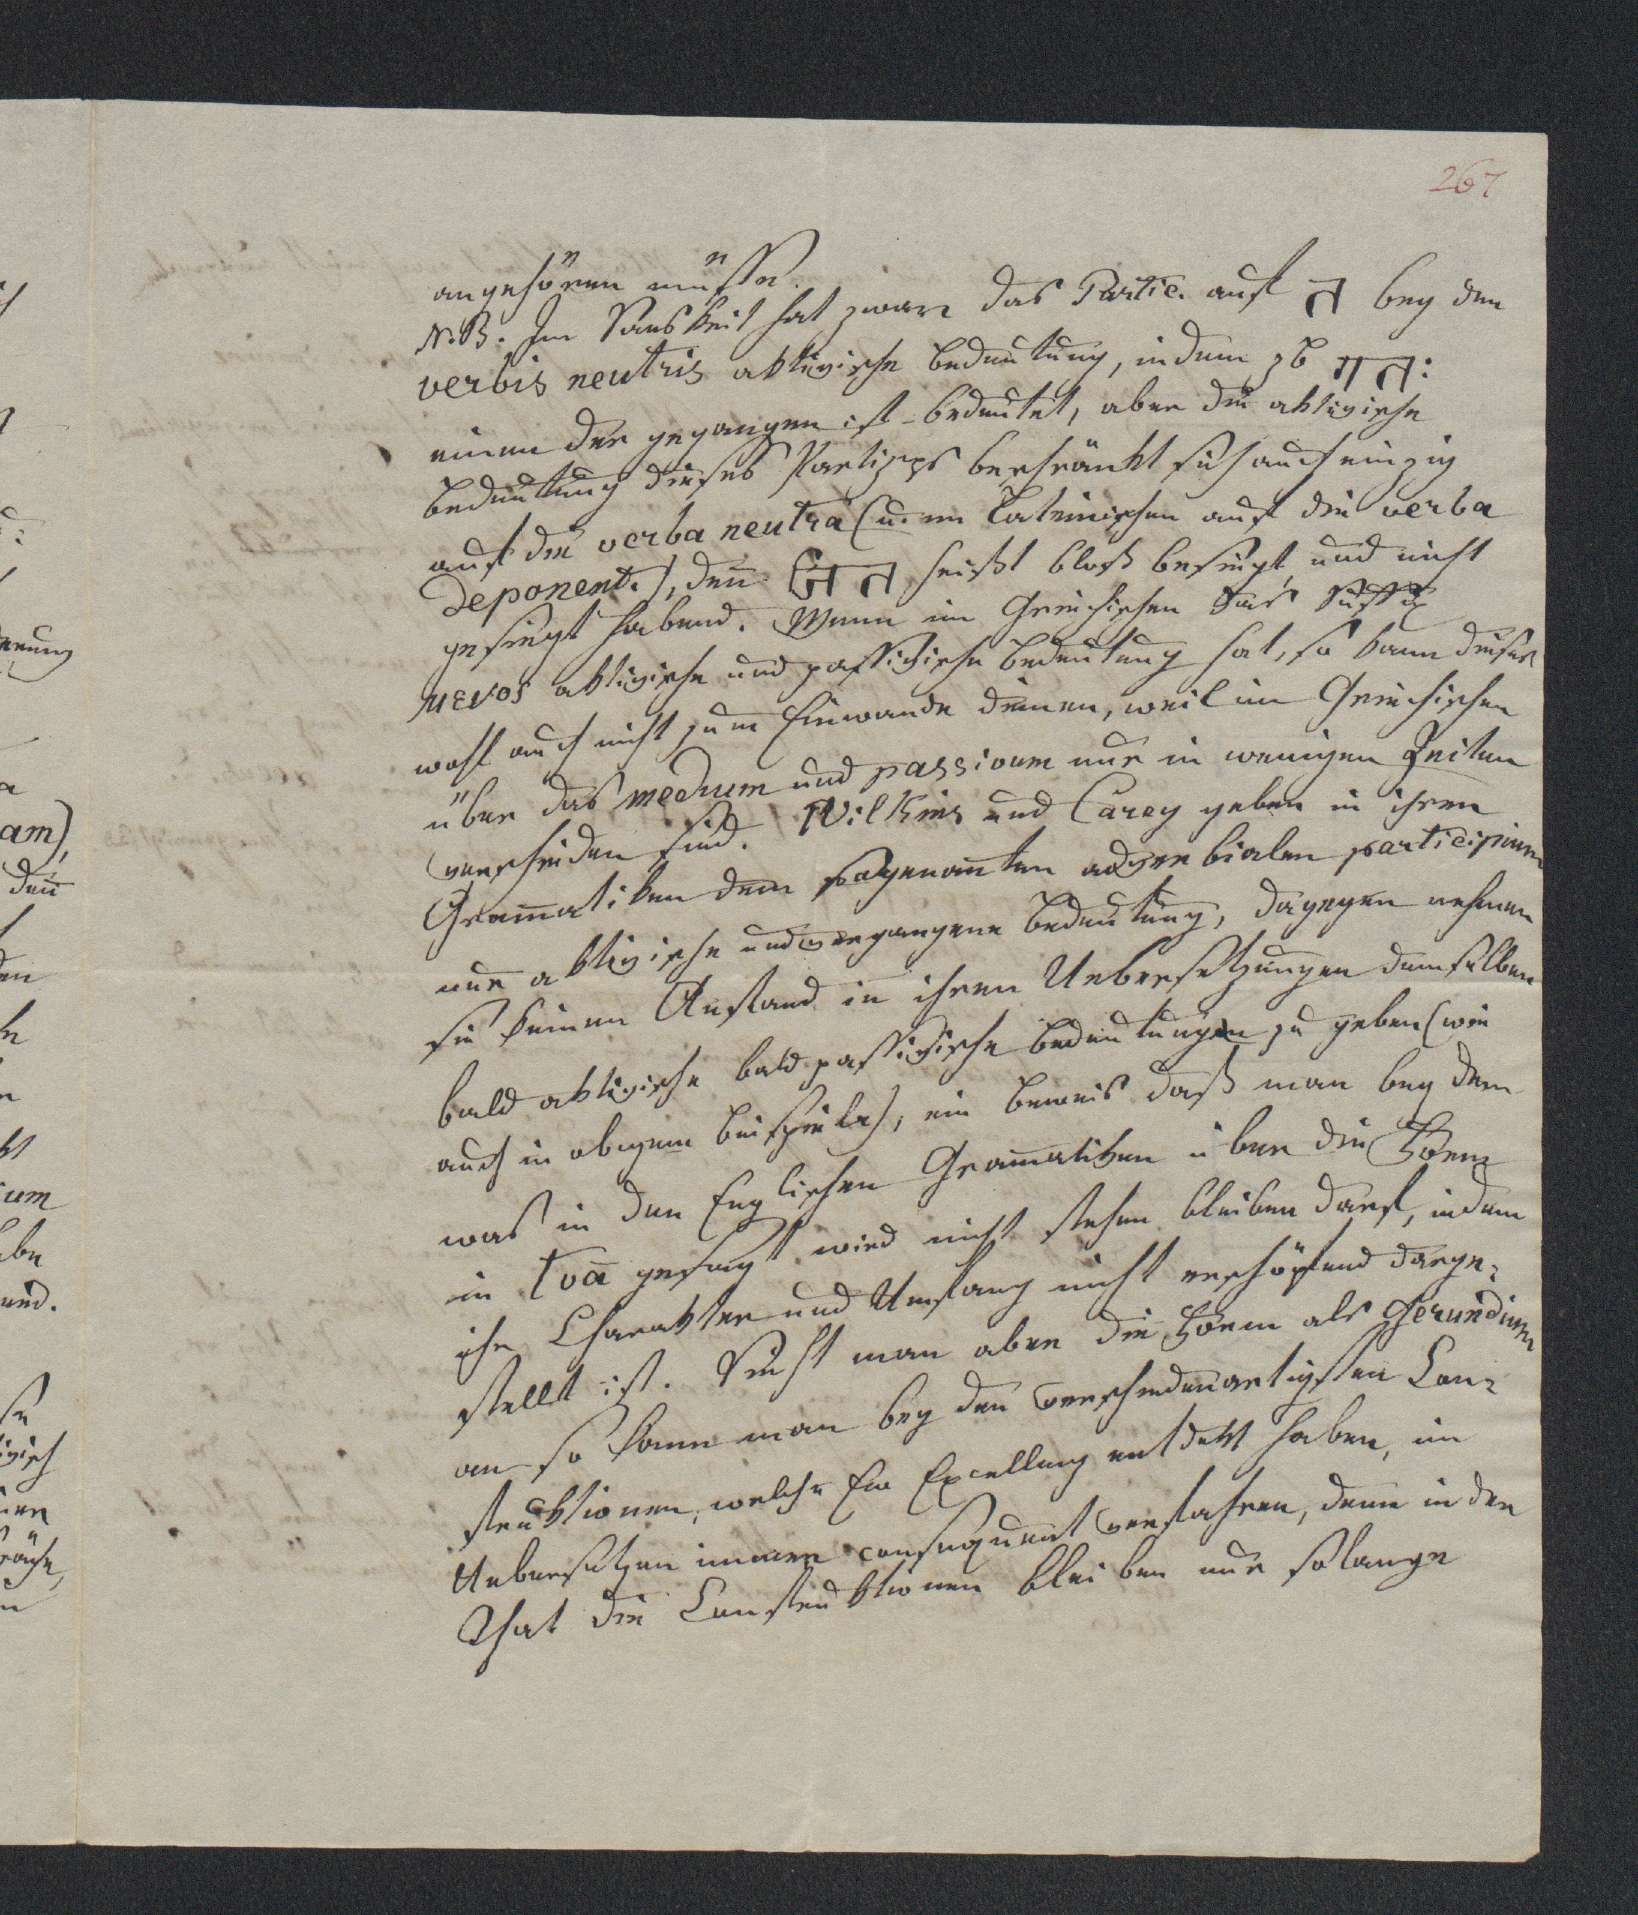 267
angehören müsse.
N.B. Im Sanskrit hat zwar das Partic. auf त bey den
verbis neutris aktivische Bedeutung, indem zb गतः
einen der gegangen ist bedeutet, aber die aktivische
Bedeutung dieses Partizips beschränkt sich auch einzig
auf die verba neutra (u. im Lateinischen auf die verba
deponent.), deñ जित heißt bloß besiegt, und nicht
gesiegt habend. Wenn im Griechischen das Suffix
μενος aktivische und passivische Bedeutung hat, so kann dieses
wohl auch nicht zum Einwande dienen, weil im Griechischen
über das medium und passivum nur in wenigen Zeiten
verschieden sind. Wilkins und Carey geben in ihren
Gram̄atiken dem sogenan̄ten adverbialen participium
nur aktivische und vergangene Bedeutung, dagegen nehmen
sie keinen Anstand in ihren Uebersetzungen demselben
bald aktivische bald passivische Bedeutungen zu geben (wie
auch in obigem Beispiele), ein Beweis daß man bey dem
was in den Englischen Gram̄atiken über die Form
in tvā gesagt wird nicht stehen bleiben darf, indem
ihr Charakter und Umfang nicht erschöpfend darge-
stellt ist. Sieht man aber die Form als Gerundium
an so kann man bey den verschiedenartigsten Con-
struktionen, welche Ew Excellenz entdekt haben, im
Uebersetzen immer consequent verfahren, denn in der
That die Construktionen bleiben nur solange